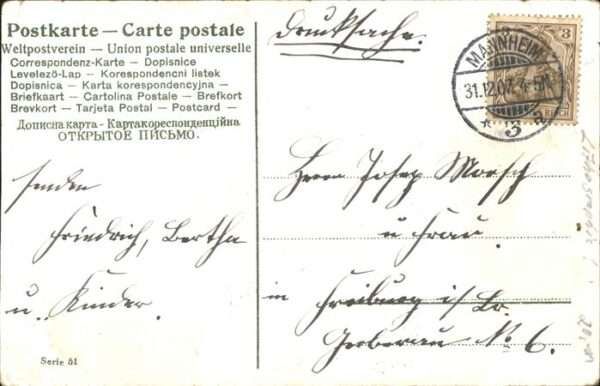 Postkarte — Carte postale
Weltpostverein — Union postale universelle
Correspondenz-Karte — Dopisnice
Levelező-Lap — Korespondencni listek
Dopisnica — Karta korespondencyjna —
Briefkaart — Cartolina Postale — Brefkort
Brevkort — Tarjeta Postal — Postcard —
Дописна карта - Картакореспонденційна
ОТКРЫТОЕ ПИСЬМО.
Drucksache.
3
MANNHEIM
31.12.07. 4-5N
* 3 a
REICH
senden
Friedrich, Bertha
u. Kinder.
Herrn Josef Morsch
u Frau.
in Freiburg i/Br.
Gerberau No 6.
Serie 51